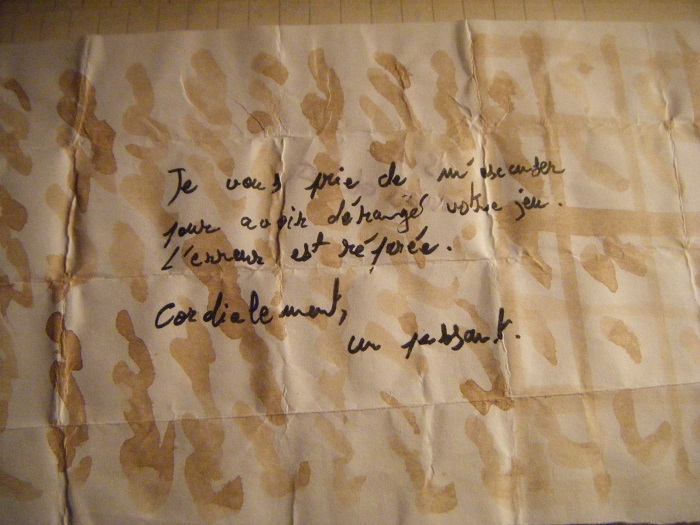 Je vous prie de m'excuser
pour avoir dérangé votre jeu.
L'erreur est réparée.
Cordialement,
un passant.